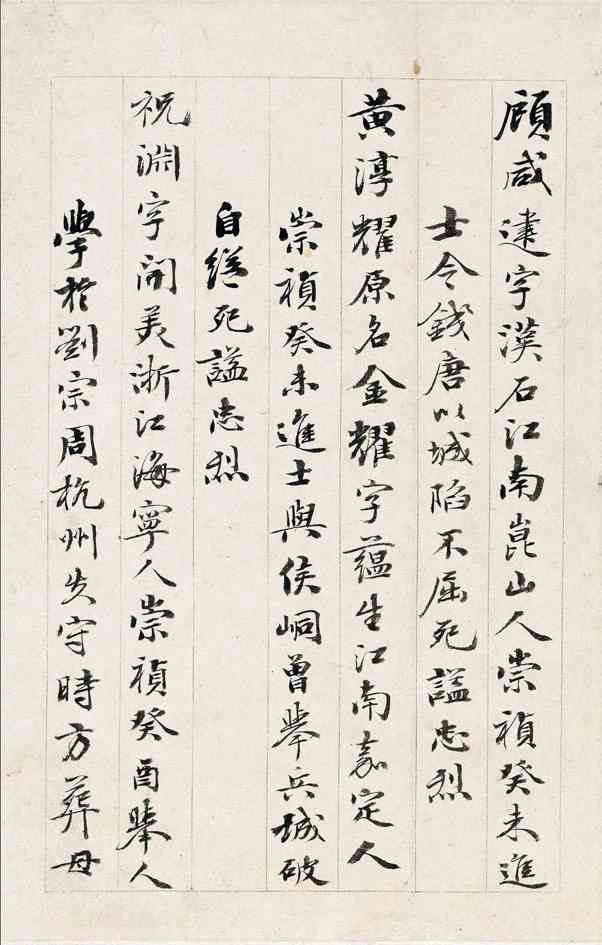 顧咸建字漢石江南崑山人崇禎癸未進
士令錢唐以城陷不屈死謚忠烈
黃淳耀原名金耀字蘊生江南嘉定人
崇禎癸未進士與侯峒曾舉兵城破
自縊死謚忠烈
祝淵字開美浙江海寧人崇禎癸酉舉人
學於劉宗周杭州失守時方葬母